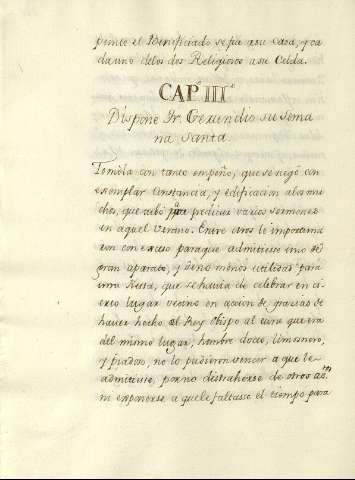 pente el Beneficiado se fue a su Casa, y ca
da uno de los dos Religiosos a su Celda.
CAP.º III.º
Dispone Fr. Gerundio su Sema
na Santa.
con tanto empeño, que se negó con
exemplar constancia, y edificacion a los mu
chos, que hubo para predicar varios sermones
en aquel verano. Entre otros le importuna
ron con exceso para que admitiesse uno de
gran aparato, y de no menos utilidad para
una fiesta, que se havia de celebrar en ci-
erto lugar vecino en accion de gracias de
haver hecho el Rey Obispo al cura que era
del mismo lugar, hombre docto, limosnero,
y piadoso, no lo pudieron vencer a que le
admitiesse, por no distraherse de otros
ni exponerse a que le faltasse el tiempo para